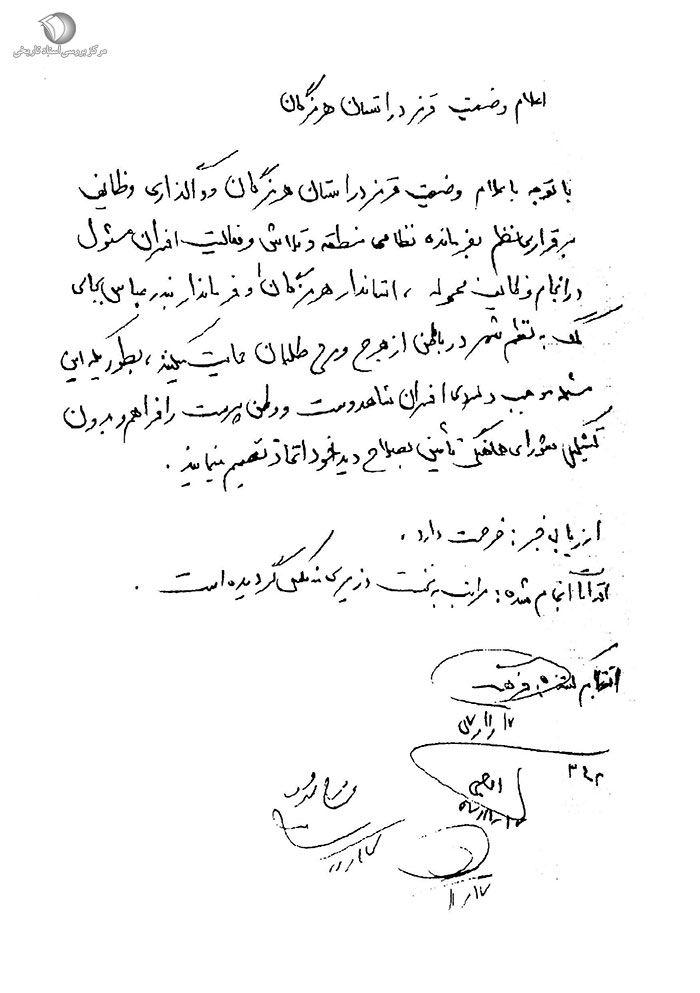 مرکز بررسی اسناد تاریخی
اعلام وضعیت قرمز در استان هرمزگان
با توجه باعلام وضعیت قرمز در استان هرمزگان و واگذاری وظائف
برقراری نظم بفرمانده نظامی منطقه و تلاش و فعالیت افسران مسئول
در انجام وظائف محوله ، استاندار هرمزگان و فرماندار بندرعباس بجای
کمک به نظم شهر در باطن از هرج و مرج طلبان حمایت میکنند ، بطوریکه این
مسئله موجب دلسردی افسران شاهدوست و وطن پرست را فراهم و بدون
تشکیل شورای هماهنگی تأمین بصلاح دید خود اتخاذ تصمیم مینمایند .
ارزیابی خبر : صحت دارد .
اقدامات انجام شده : مراتب به نخست وزیری منعکس گردیده است .